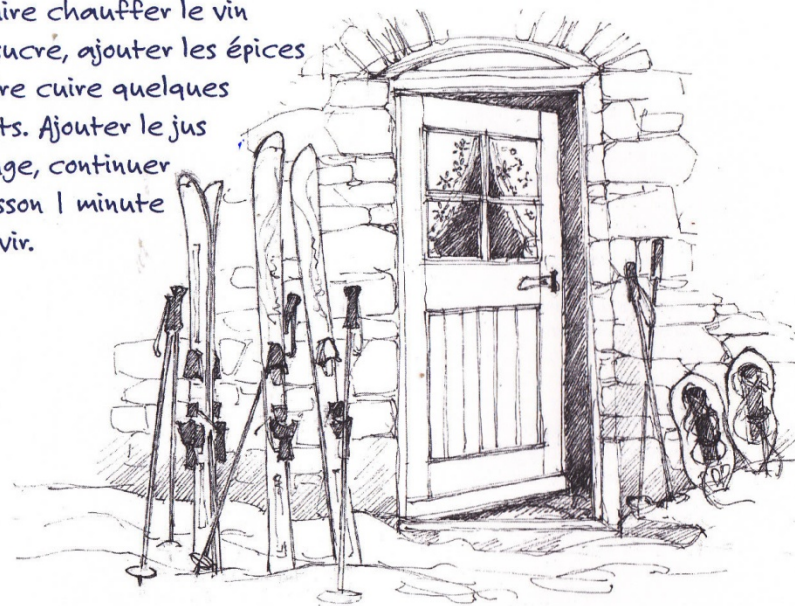 ire chauffer le vin
sucre, ajouter les épices
re cuire quelques
ts. Ajouter le jus
ge, continuer
sson 1 minute
vir.